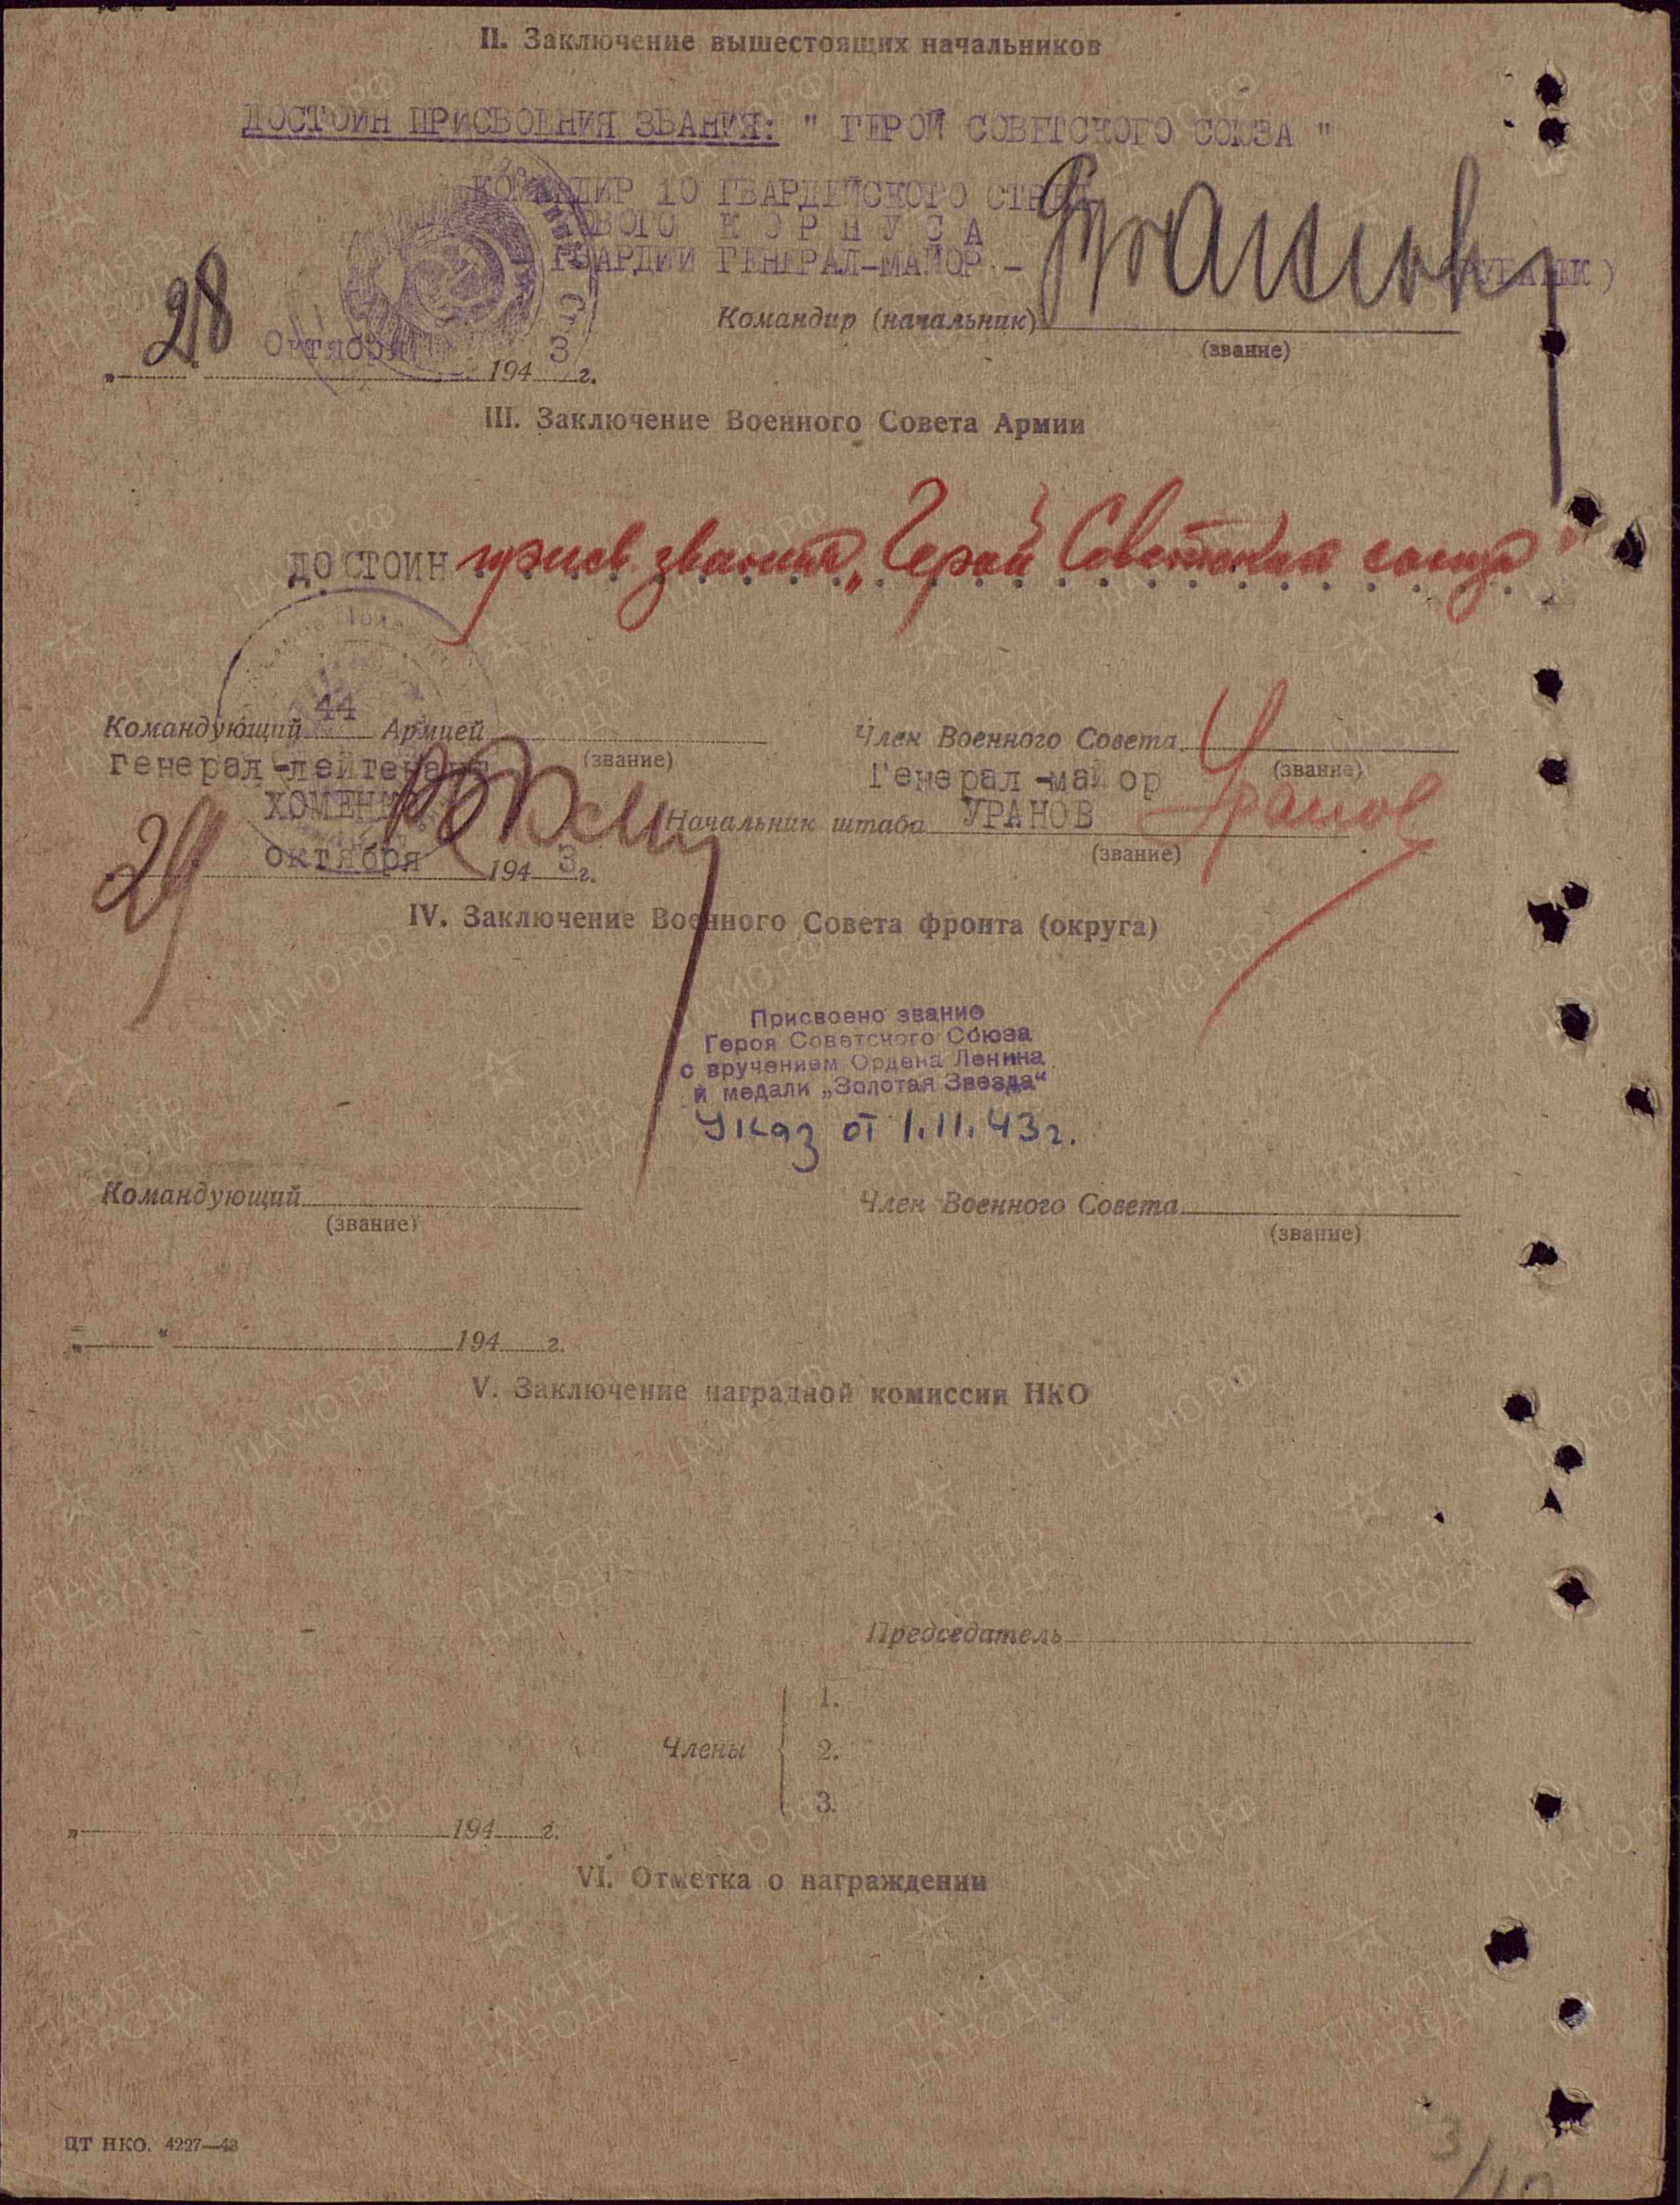 II. Заключение вышестоящих начальников
ДОСТОИН ПРИСВОЕНИЯ ЗВАНИЯ: " ГЕРОЙ СОВЕТСКОГО СОЮЗА "
КОМАНДИР 10 ГВАРДЕЙСКОГО СТРЕЛ
КОВОГО К О Р П У С А
ГВАРДИИ ГЕНЕРАЛ-МАЙОР -
Командир (начальник)
(звание)
28 Октября 194 3 г.
III. Заключение Военного Совета Армии
ДОСТОИН присв. звания „Герой Советская союза"
Командующий 44 Армией
(звание)
Генерал-лейтенант
ХОМЕНКО
Член Военного Совета
(звание)
Генерал-майор
Начальник штаба УРАНОВ Уранов
(звание)
29 октября 194 3 г.
IV. Заключение Военного Совета фронта (округа)
Присвоено звание
Героя Советского Союза
с вручением Ордена Ленина
и медали „Золотая Звезда"
Указ от 1.11.43г.
Командующий
(звание)
Член Военного Совета
(звание)
„ " 194 г.
V. Заключение наградной комиссии НКО
Председатель
Члены
1.
2.
3.
„ 194 г.
VI. Отметка о награждении
ЦТ НКО. 4227—43
ПАМЯТЬ НАРОДА
ЦАМО РФ